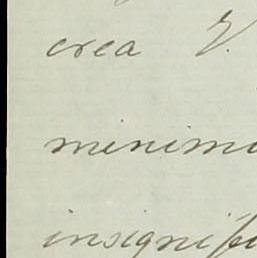 crea V.
minimo
insignifi